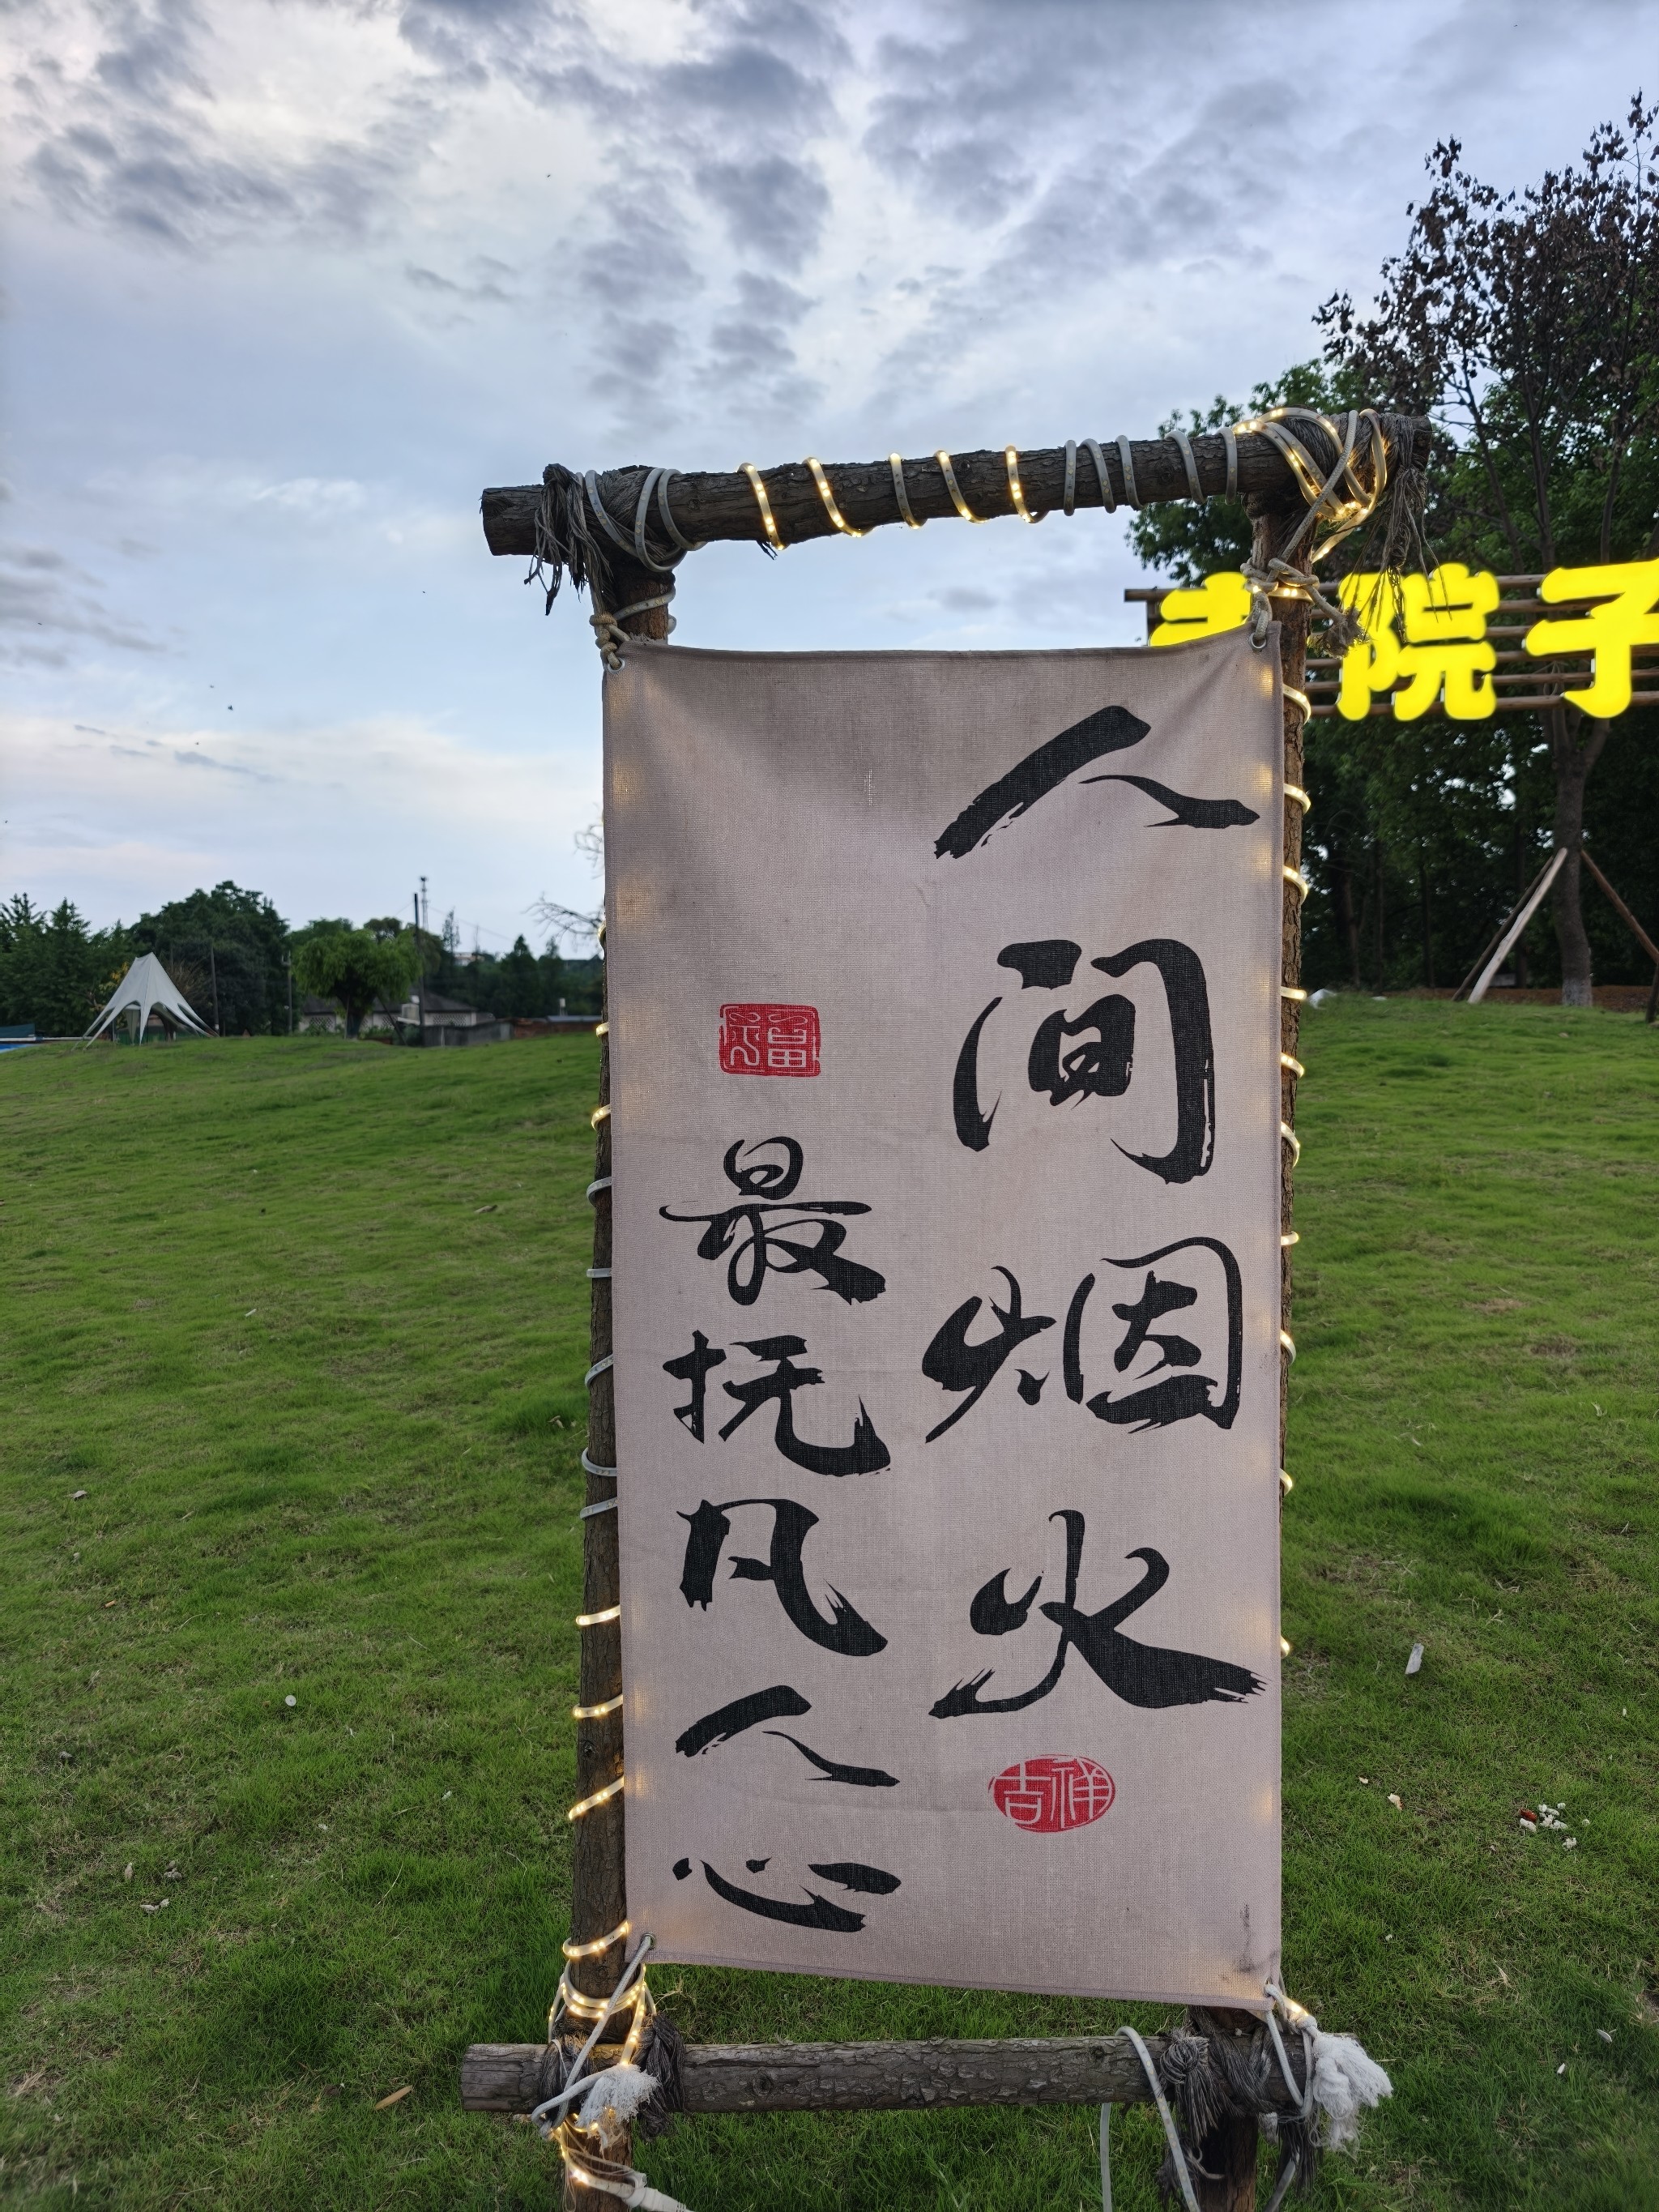 人间烟火
吉祥
福
最抚凡人心
院子